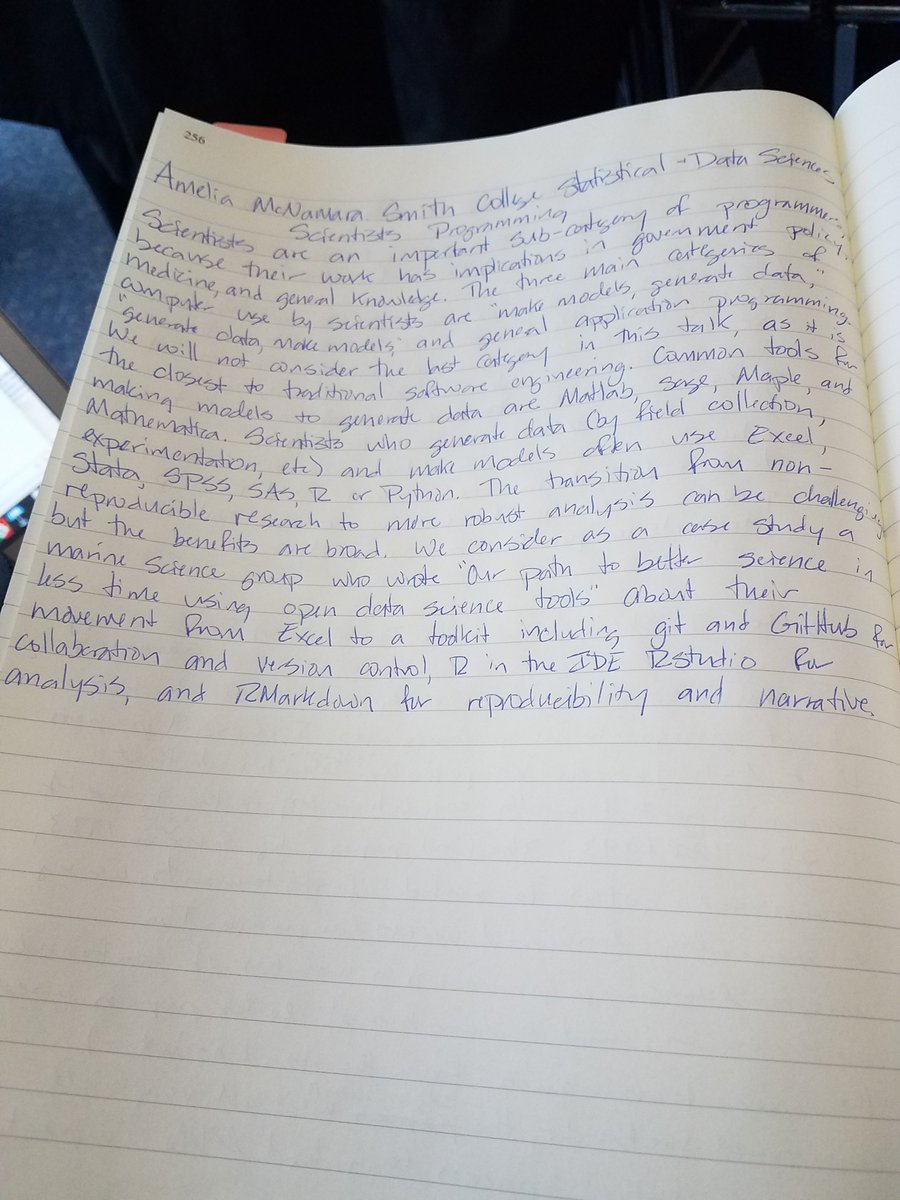 256
Amelia McNamara Smith College Statistical + Data Sciences
Scientists Programming
Scientists are an important sub-category of programmer,
because their work has implications in government policy,
medicine, and general knowledge. The three main categories of
computer use by scientists are "make models, generate data,"
"generate data, make models," and general application programming.
We will not consider the last category in this talk, as it is
the closest to traditional software engineering. Common tools for
making models to generate data are Matlab, Sage, Maple, and
Mathematica. Scientists who generate data (by field collection,
experimentation, etc) and make models often use Excel,
Stata, SPSS, SAS, R or Python. The transition from non-
reproducible research to more robust analysis can be challenging
but the benefits are broad. We consider as a case study a
marine science group who wrote "Our path to better science in
less time using open data science tools" about their
movement from Excel to a toolkit including git and GitHub for
collaboration and version control, R in the IDE RStudio for
analysis, and RMarkdown for reproducibility and narrative.